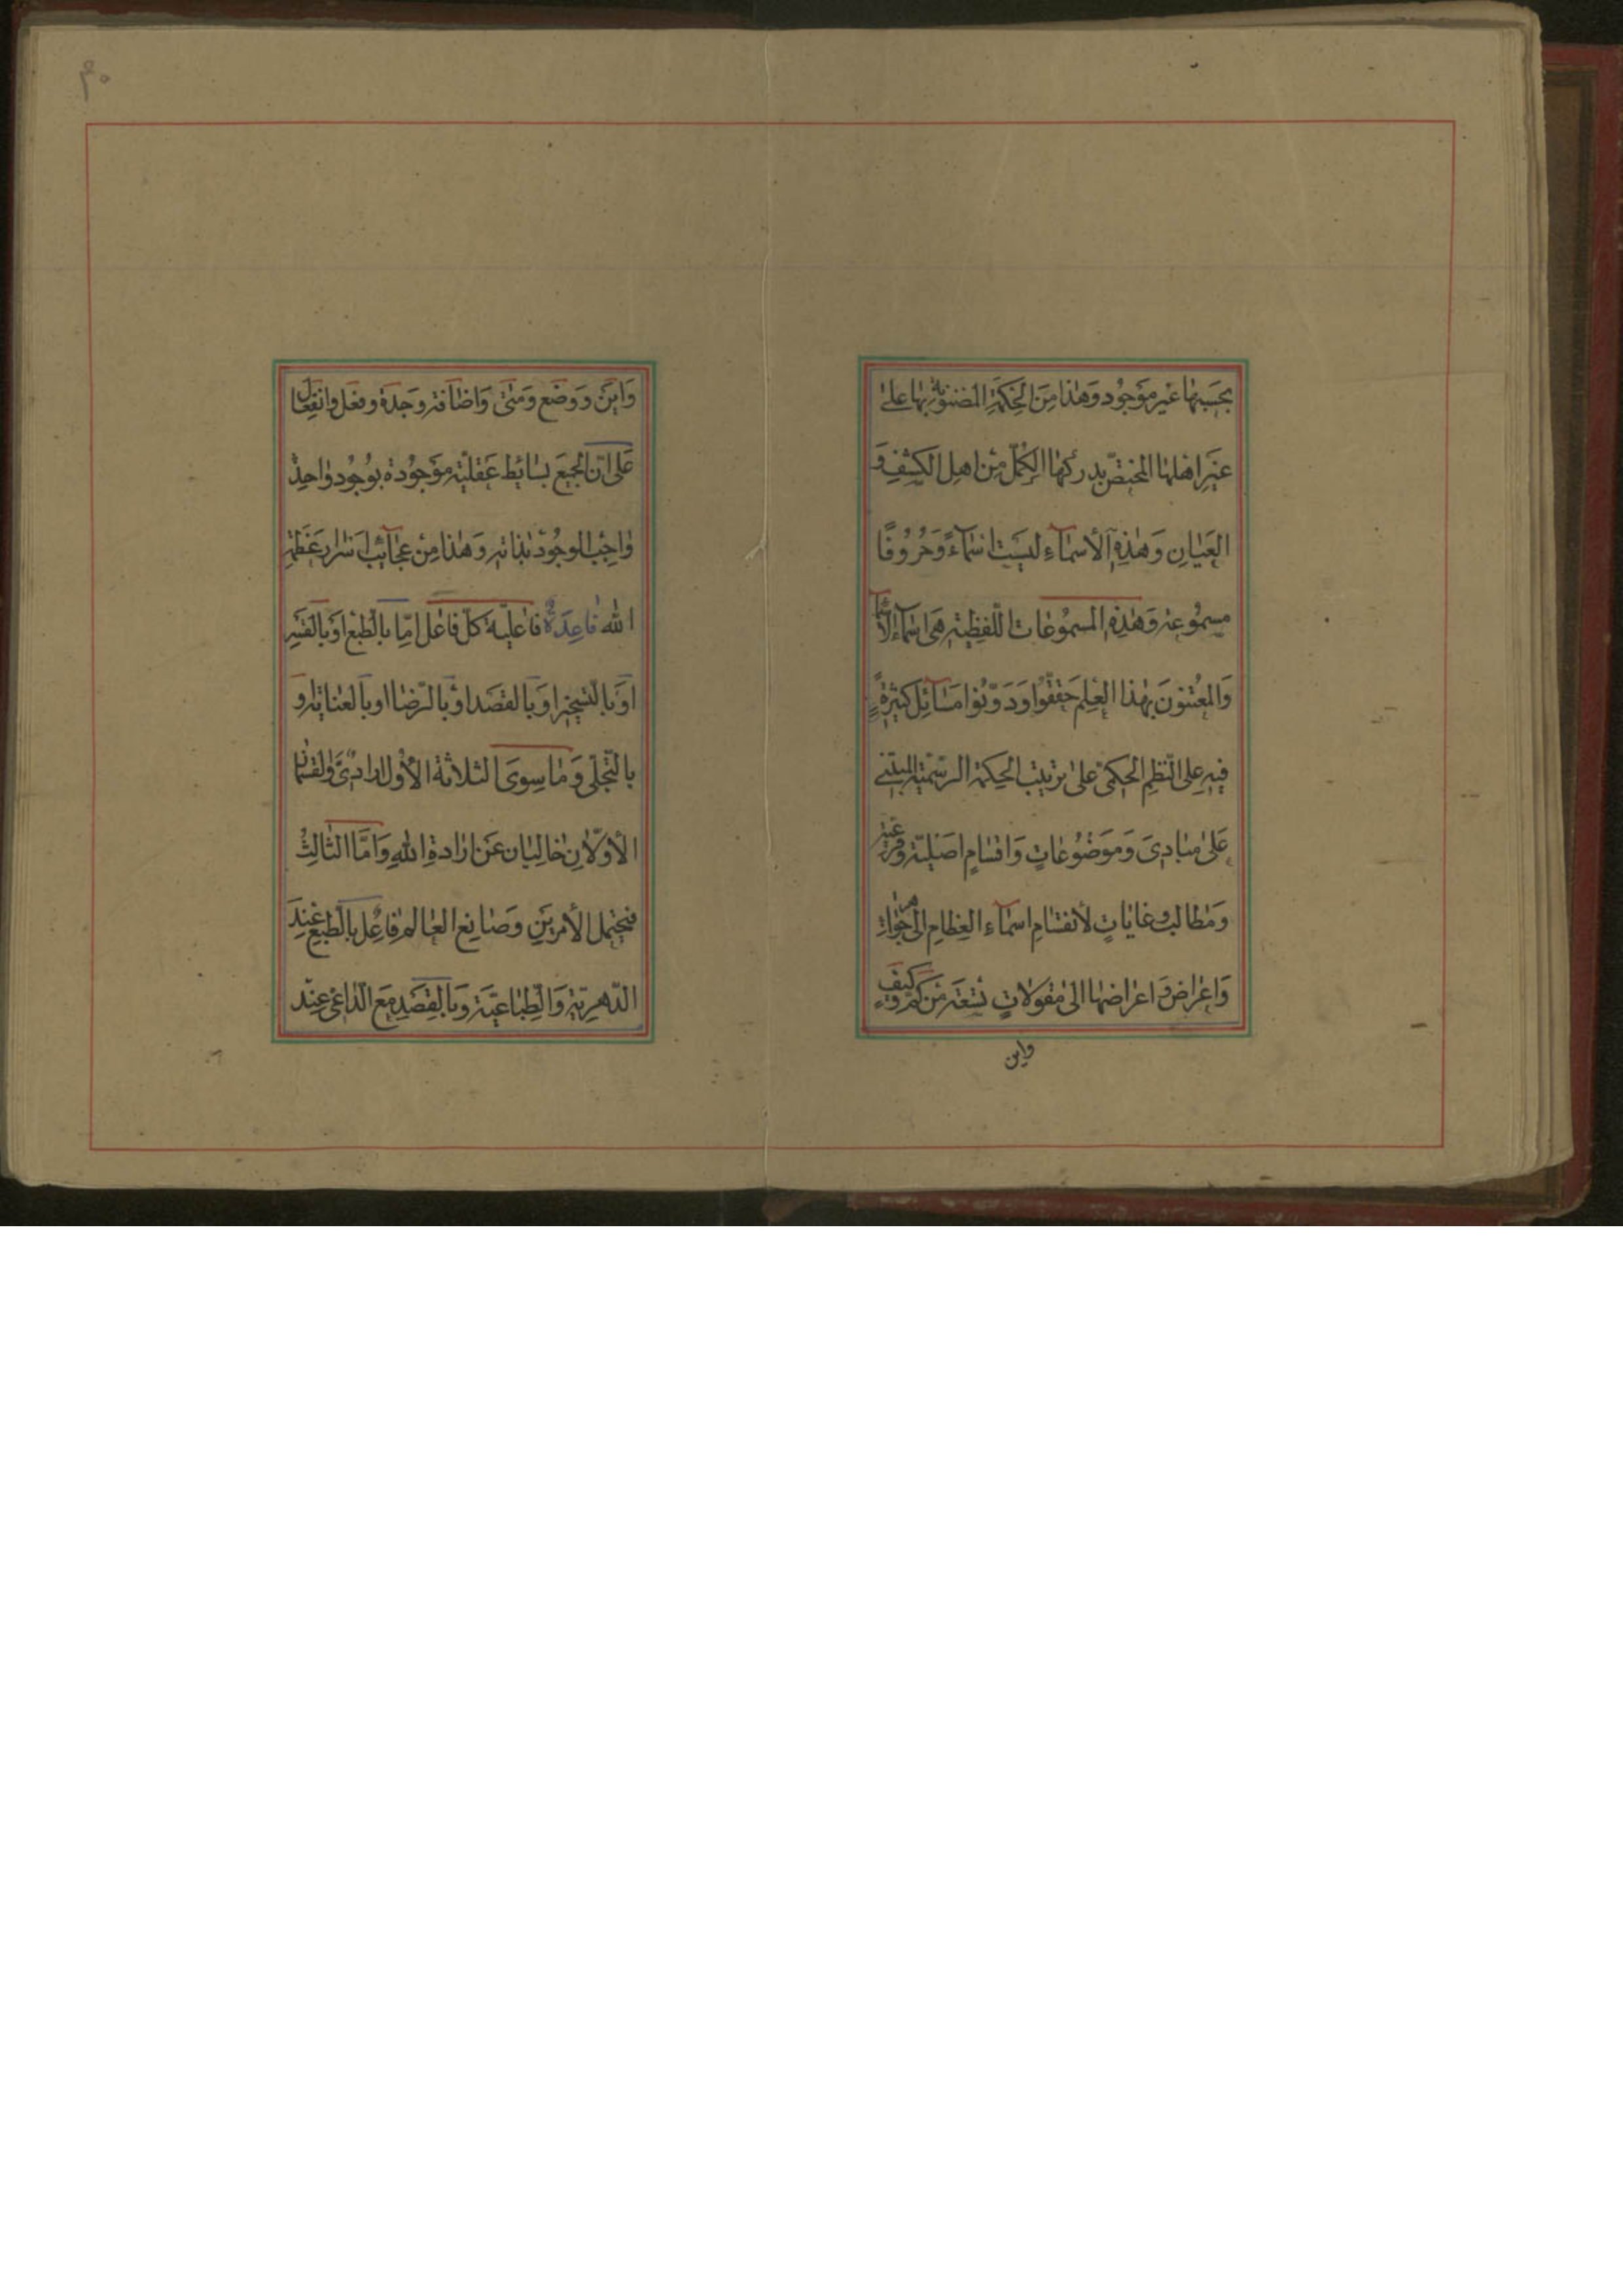 بحسبها غير موجود وهذا من الحكمة المضنونة بها على
غير اهلها المختصّ بدركها الكمّل من اهل الكشف و
العيان وهذه الأسماء ليست اسماءً وحروفًا
مسموعة وهذه المسموعات اللّفظية هى اسماء الاسماء
والمعتنون بهذا العلم حقّقوا ودوّنوا مسائل كثيرة
فيه على النّظم الحكمىّ على ترتيب الحكمة الرسميّة المبتنى
على مبادى وموضوعات واقسام اصليّة وفرعيّة
ومطالب وغايات لأنقسام اسماء العظام الى جواهر
واعراض واعراضها الى مقولات تسعة من كمّ وكيف
واين
٤٠
واين ووضع ومتى واضافة وجدة وفعل وانفعال
على انّ الجميع بسائط عقليّة موجودة بوجود واحد
واجب الوجود بذاته وهذا من عجائب اسرار عظمة
الله قاعدة فاعلية كلّ فاعل امّا بالطّبع او بالقسر
او بالتّسخير او بالقصد او بالرّضا او بالعناية و
بالتّجلّى وما سوى الثلاثة الأول ارادىّ والقسمان
الأوّلان خاليان عن ارادة الله وامّا الثالث
فيحتمل الأمرين وصانع العالم فاعل بالطّبع عند
الدّهريّة والطّباعيّة وبالقصد مع الدّاعى عند